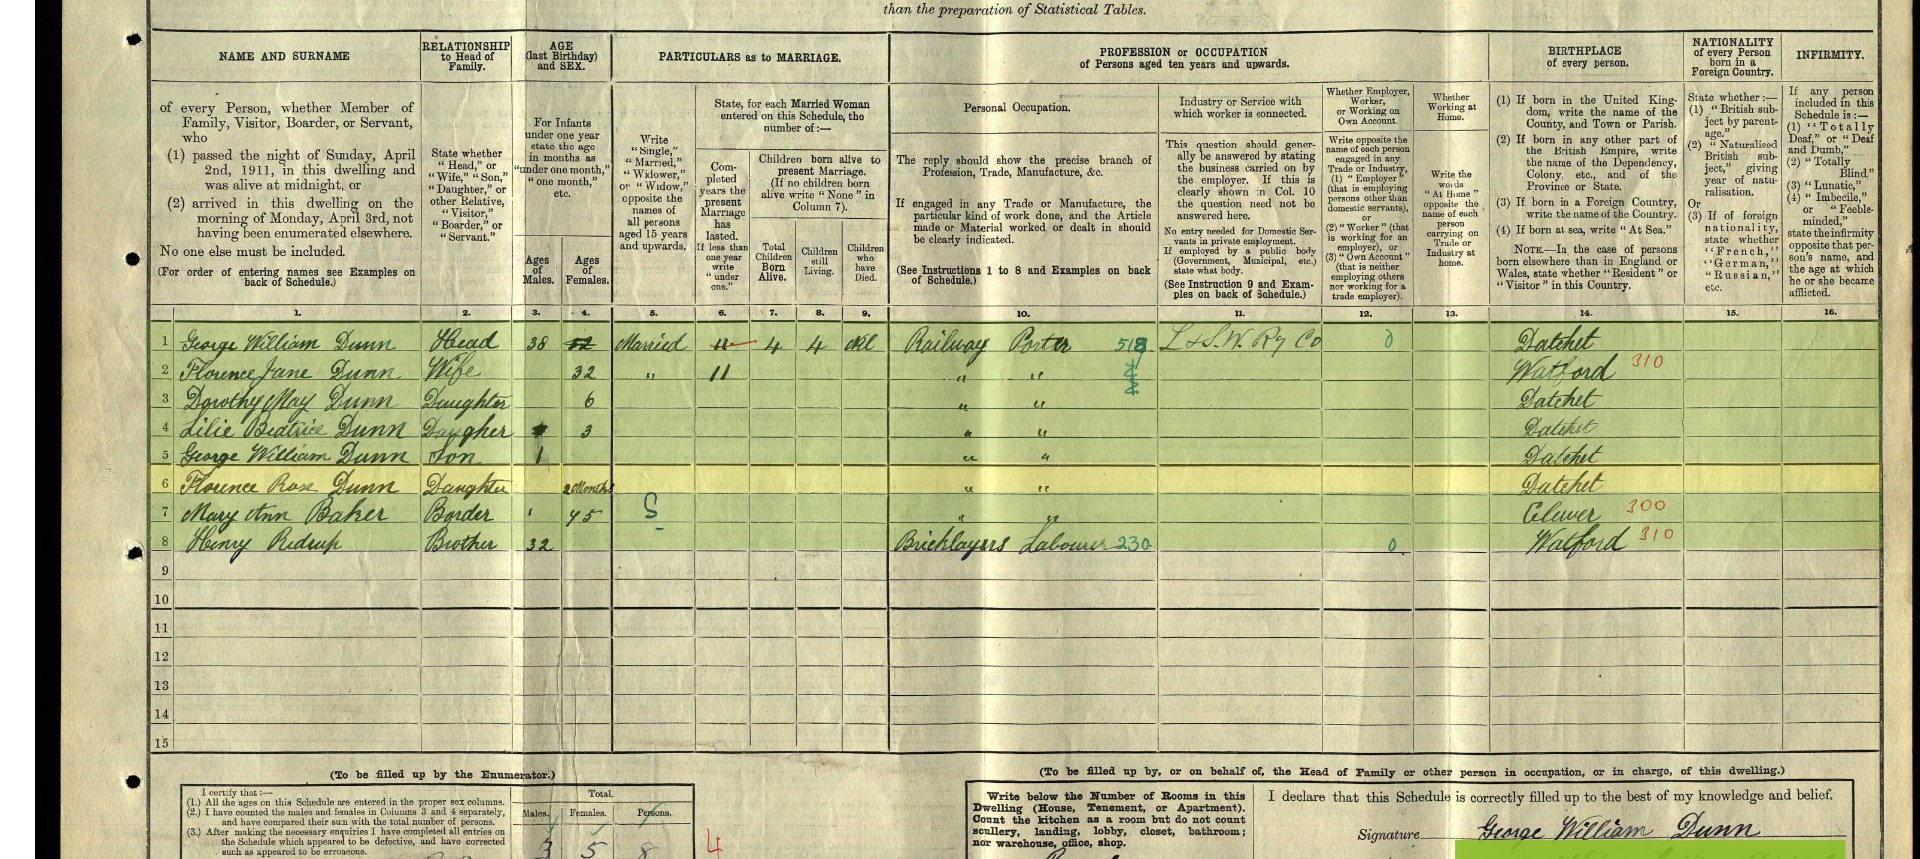 than the preparation of Statistical Tables.
NAME AND SURNAME
RELATIONSHIP
to Head of
Family.
AGE
(last Birthday)
and SEX.
PARTICULARS as to MARRIAGE.
PROFESSION or OCCUPATION
of Persons aged ten years and upwards.
BIRTHPLACE
of every person.
NATIONALITY
of every Person
born in a
Foreign Country.
INFIRMITY.
of every Person, whether Member of
Family, Visitor, Boarder, or Servant,
who
(1) passed the night of Sunday, April
2nd, 1911, in this dwelling and
was alive at midnight, or
(2) arrived in this dwelling on the
morning of Monday, April 3rd, not
having been enumerated elsewhere.
No one else must be included.
(For order of entering names see Examples on
back of Schedule.)
State whether
"Head," or
"Wife," "Son,"
"Daughter," or
other Relative,
"Visitor,"
"Boarder," or
"Servant."
For Infants
under one year
state the age
in months as
"under one month,"
"one month,"
etc.
Ages
of
Males.
Ages
of
Females.
Write
"Single,"
"Married,"
"Widower,"
or "Widow,"
opposite the
names of
all persons
aged 15 years
and upwards.
State, for each Married Woman
entered on this Schedule, the
number of:—
Com-
pleted
years the
present
Marriage
has
lasted.
If less than
one year
write
"under
one."
Children born alive to
present Marriage.
(If no children born
alive write "None" in
Column 7).
Total
Children
Born
Alive.
Children
still
Living.
Children
who
have
Died.
Personal Occupation.
The reply should show the precise branch of
Profession, Trade, Manufacture, &c.
If engaged in any Trade or Manufacture, the
particular kind of work done, and the Article
made or Material worked or dealt in should
be clearly indicated.
(See Instructions 1 to 8 and Examples on back
of Schedule.)
Industry or Service with
which worker is connected.
This question should gener-
ally be answered by stating
the business carried on by
the employer. If this is
clearly shown in Col. 10
the question need not be
answered here.
No entry needed for Domestic Ser-
vants in private employment.
If employed by a public body
(Government, Municipal, etc.)
state what body.
(See Instruction 9 and Exam-
ples on back of Schedule.)
Whether Employer,
Worker,
or Working on
Own Account.
Write opposite the
name of each person
engaged in any
Trade or Industry,
(1) "Employer"
(that is employing
persons other than
domestic servants),
or
(2) "Worker" (that
is working for an
employer), or
(3) "Own Account"
(that is neither
employing others
nor working for a
trade employer).
Whether
Working at
Home.
Write the
words
"At Home"
opposite the
name of each
person
carrying on
Trade or
Industry at
home.
(1) If born in the United King-
dom, write the name of the
County, and Town or Parish.
(2) If born in any other part of
the British Empire, write
the name of the Dependency,
Colony, etc., and of the
Province or State.
(3) If born in a Foreign Country,
write the name of the Country.
(4) If born at sea, write "At Sea."
NOTE.—In the case of persons
born elsewhere than in England or
Wales, state whether "Resident" or
"Visitor" in this Country.
State whether :—
(1) "British sub-
ject by parent-
age."
(2) "Naturalised
British sub-
ject," giving
year of natu-
ralisation.
Or
(3) If of foreign
nationality,
state whether
"French,"
"German,"
"Russian,"
etc.
If any person
included in this
Schedule is :—
(1) "Totally
Deaf," or "Deaf
and Dumb,"
(2) "Totally
Blind,"
(3) "Lunatic,"
(4) "Imbecile,"
or "Feeble-
minded,"
state the infirmity
opposite that per-
son's name, and
the age at which
he or she became
afflicted.
1. 2. 3. 4. 5. 6. 7. 8. 9. 10. 11. 12. 13. 14. 15. 16.
1 George William Dunn Head 38 52 Married 11 4 4 Nil Railway Porter 518 L & S.W. Ry Co 0 Datchet
2 Florence Jane Dunn Wife 32 " 11 " " Watford 310
3 Dorothy May Dunn Daughter 6 " " Datchet
4 Lilie Beatrice Dunn Daugher 3 " " Datchet
5 George William Dunn Son 1 " " Datchet
6 Florence Rose Dunn Daughter 2 Months " " Datchet
7 Mary Ann Baker Border 75 S " " Clewer 300
8 Henry Redrup Brother 32 Bricklayers Labourer 230 0 Watford 310
9
10
11
12
13
14
15
(To be filled up by the Enumerator.)
I certify that:—
(1.) All the ages on this Schedule are entered in the proper sex columns.
(2.) I have counted the males and females in Columns 3 and 4 separately,
and have compared their sum with the total number of persons.
(3.) After making the necessary enquiries I have completed all entries on
the Schedule which appeared to be defective, and have corrected
such as appeared to be erroneous.
Total.
Males. Females. Persons.
3 5 8 4
(To be filled up by, or on behalf of, the Head of Family or other person in occupation, or in charge, of this dwelling.)
Write below the Number of Rooms in this
Dwelling (House, Tenement, or Apartment).
Count the kitchen as a room but do not count
scullery, landing, lobby, closet, bathroom;
nor warehouse, office, shop.
I declare that this Schedule is correctly filled up to the best of my knowledge and belief.
Signature George William Dunn